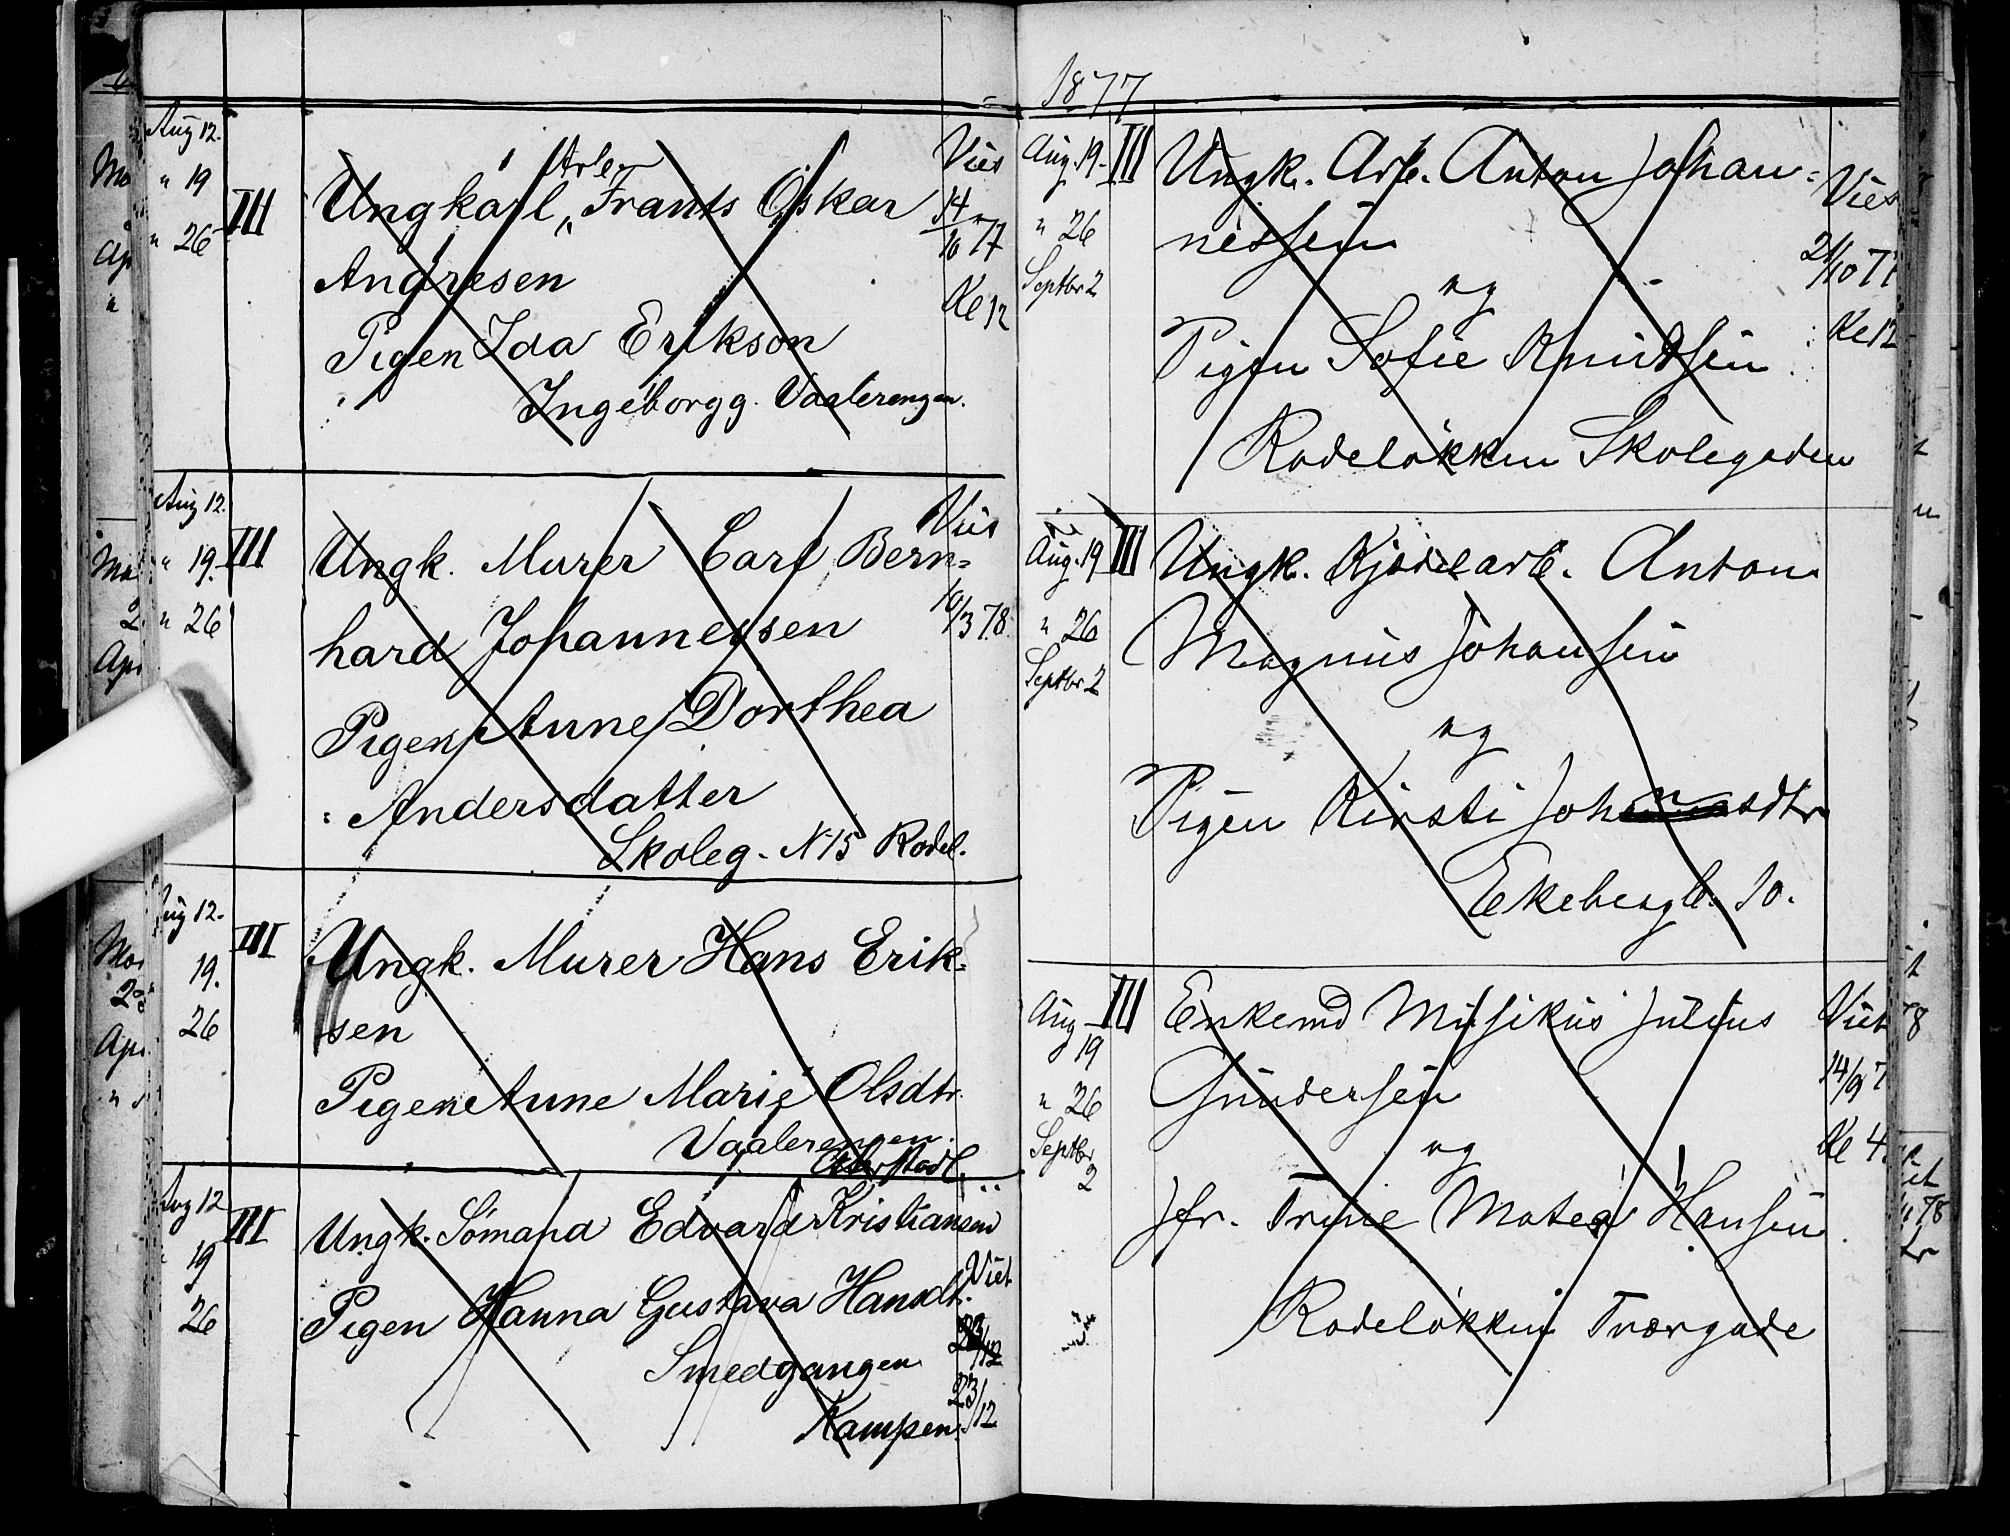 1877
Aug 12.
" 19
" 26
III
Arb.
Ungkarl, Frants Oskar
Andresen
Pigen Ida Erikson
Ingeborgg. Vaalerengen.
Vies
14/10 77
Kl 12
Aug 12.
" 19.
" 26
III
Ungk. Murer Carl Bern=
hard Johannessen
Pigen Anne Dorthea
Andersdatter
Skoleg. N 15 Rodel.
Viis
10/3 78.
Aug 12.
19.
26
III
Ungk. Murer Hans Erik=
sen
Pigen Anne Marie Olsdtr.
Vaalerengen.
Aug 12
19
26
III
Ungk. Sömand Edvard Kristiansen
Pigen Hanna Gustava Hansdt.
Smedgangen
Kampen.
Viet
23/12
Aug. 19.
" 26
Septbr 2
III
Ungk. Arb. Anton Johan=
nessen
og
Pigen Sofie Knudsen
Rodelökken Skolegaden
Vies
21/10 77
Kl 12
Aug. 19
" 26
Septbr 2
III
Ungk. Kjødelarb. Anton
Magnus Johansen
og
Pigen Kirsti Johansdtr
Ekebergb. 10.
Aug
19
" 26
Septbr
2
III
Enkemd Musikus Julius
Gundersen
og
Jfr. Trine Matea Hansen.
Rodelökken Tværgade
Viet
14/9 7
Kl 4.